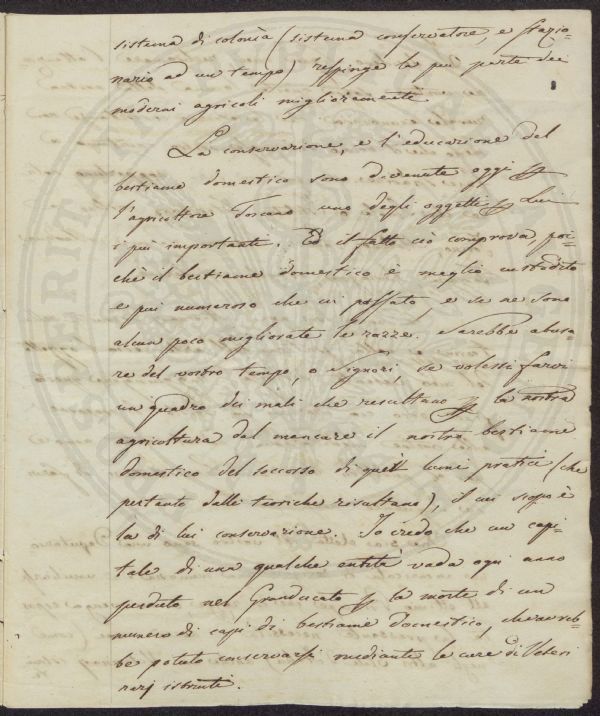 sistema di colonìa (sistema conservatore, e stazio-
nario ad un tempo) respinge la più parte dei
moderni agricoli miglioramenti.
La conservazione, e l'educazione del
bestiame domestico sono divenute oggi p
l'agricoltore Toscano uno degli oggetti p Lui
i più importanti. Ed il fatto ciò comprova, poi-
chè il bestiame domestico è meglio custodito
e più numeroso che in passato, e se ne sono
alcun poco migliorate le razze. Sarebbe abusa-
re del vostro tempo, o Signori, se volessi farvi
un quadro dei mali che resultano p la nostra
agricoltura dal mancare il nostro bestiame
domestico del soccorso di quei lumi pratici (che
pertanto dalle teoriche risultano), il cui scopo è
la di lui conservazione. Io credo che un capi-
tale di una qualche entità vada ogni anno
perduto nel Granducato p la morte di un
numero di capi di bestiame domestico, che avreb-
be potuto conservarsi mediante le cure di Veteri
narj istruiti.